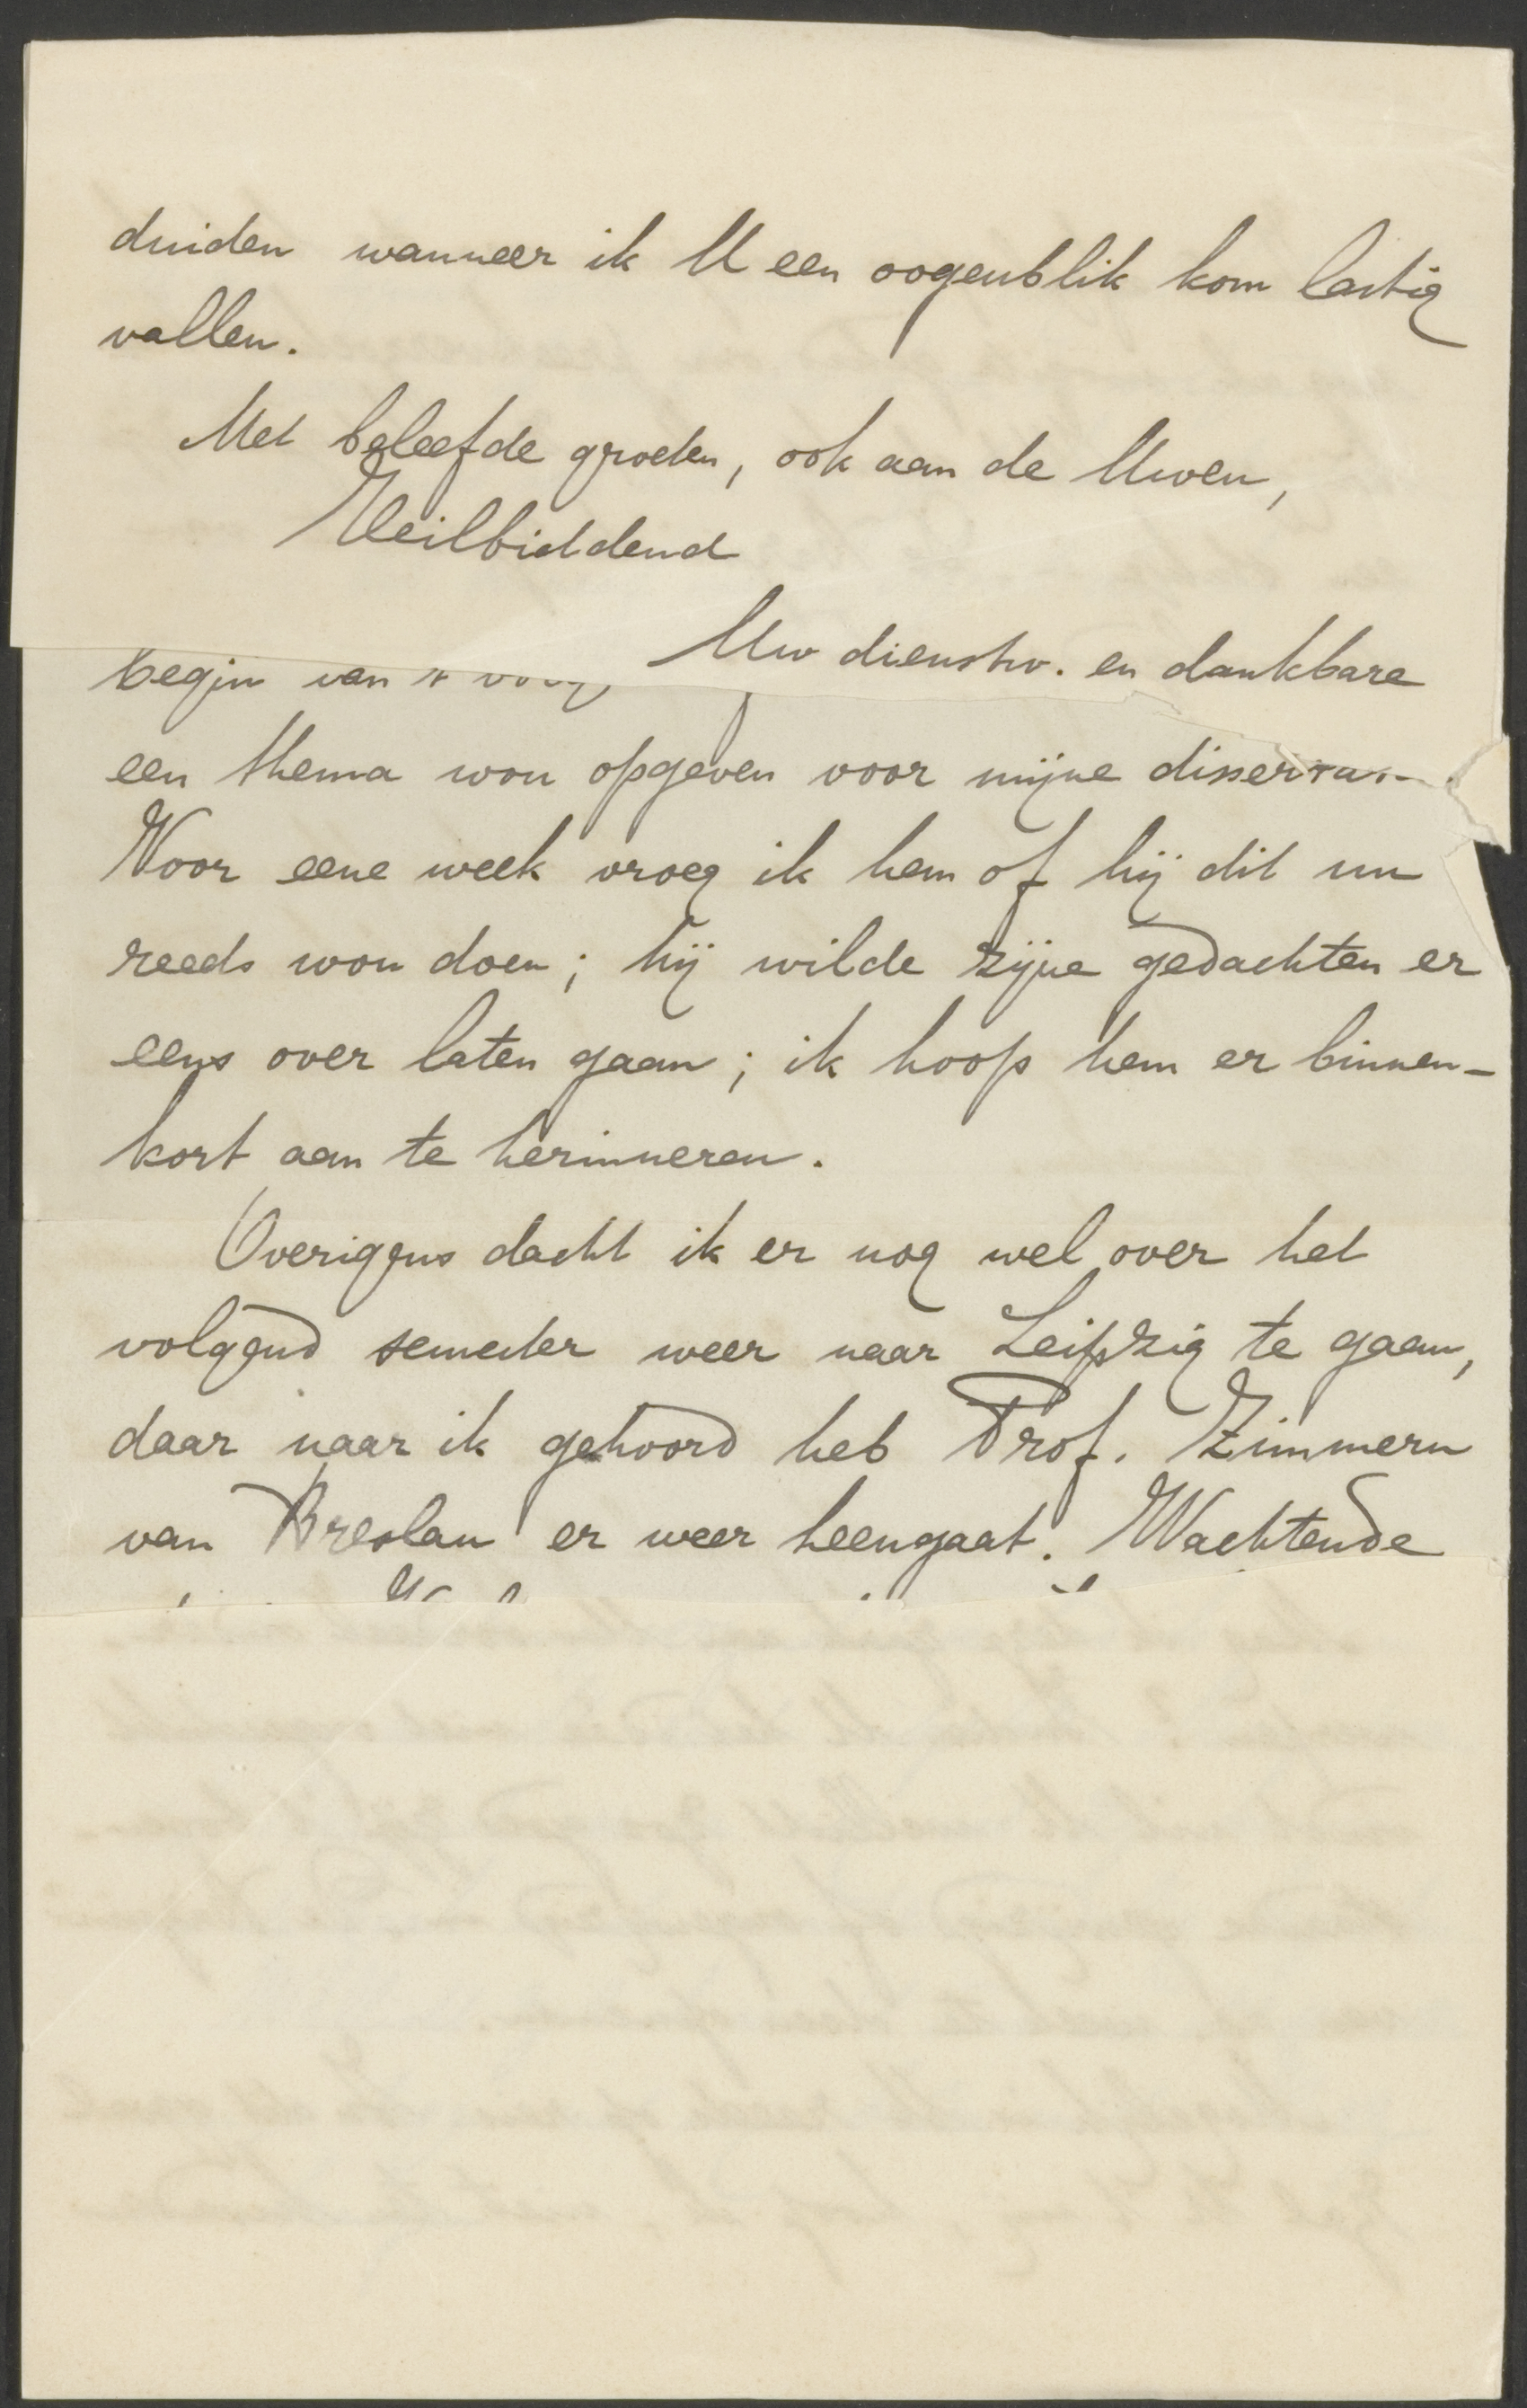 duiden wanneer ik U een oogenblik kom lastig
vallen.
Met beleefde groeten, ook aan de Uwen,
Heilbiddend
Uw dienstw. en dankbare
begin van 't
een thema wou opgeven voor mijne
Voor eene week vroeg ik hem of hij dit nu
reeds wou doen; hij wilde zijne gedachten er
eens over laten gaan; ik hoop hem er binnen-
kort aan te herinneren.
Overigens dacht ik er nog wel over het
volgend semester weer naar Leipzig te gaan,
daar naar ik gehoord heb Prof. Zimmern
van Breslau er weer heengaat. Wachtende